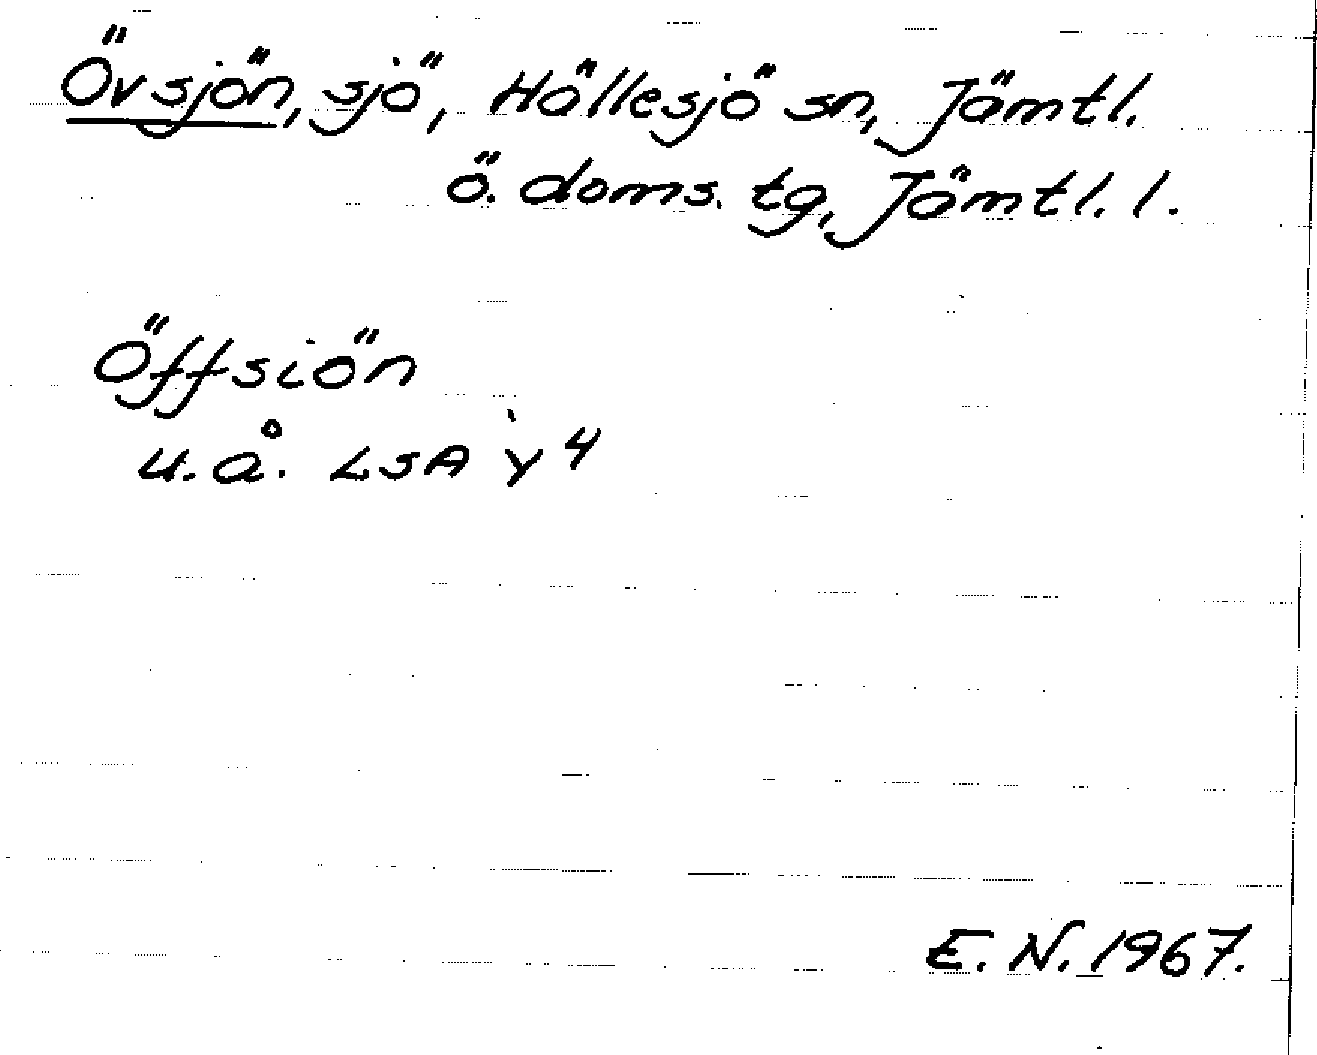 Övsjön, sjö, Hällesjö sn, Jämtl.
ö. doms. tg, Jämtl. l.
Öffsiön
u.å. LSA Y 4
E. N. 1967.